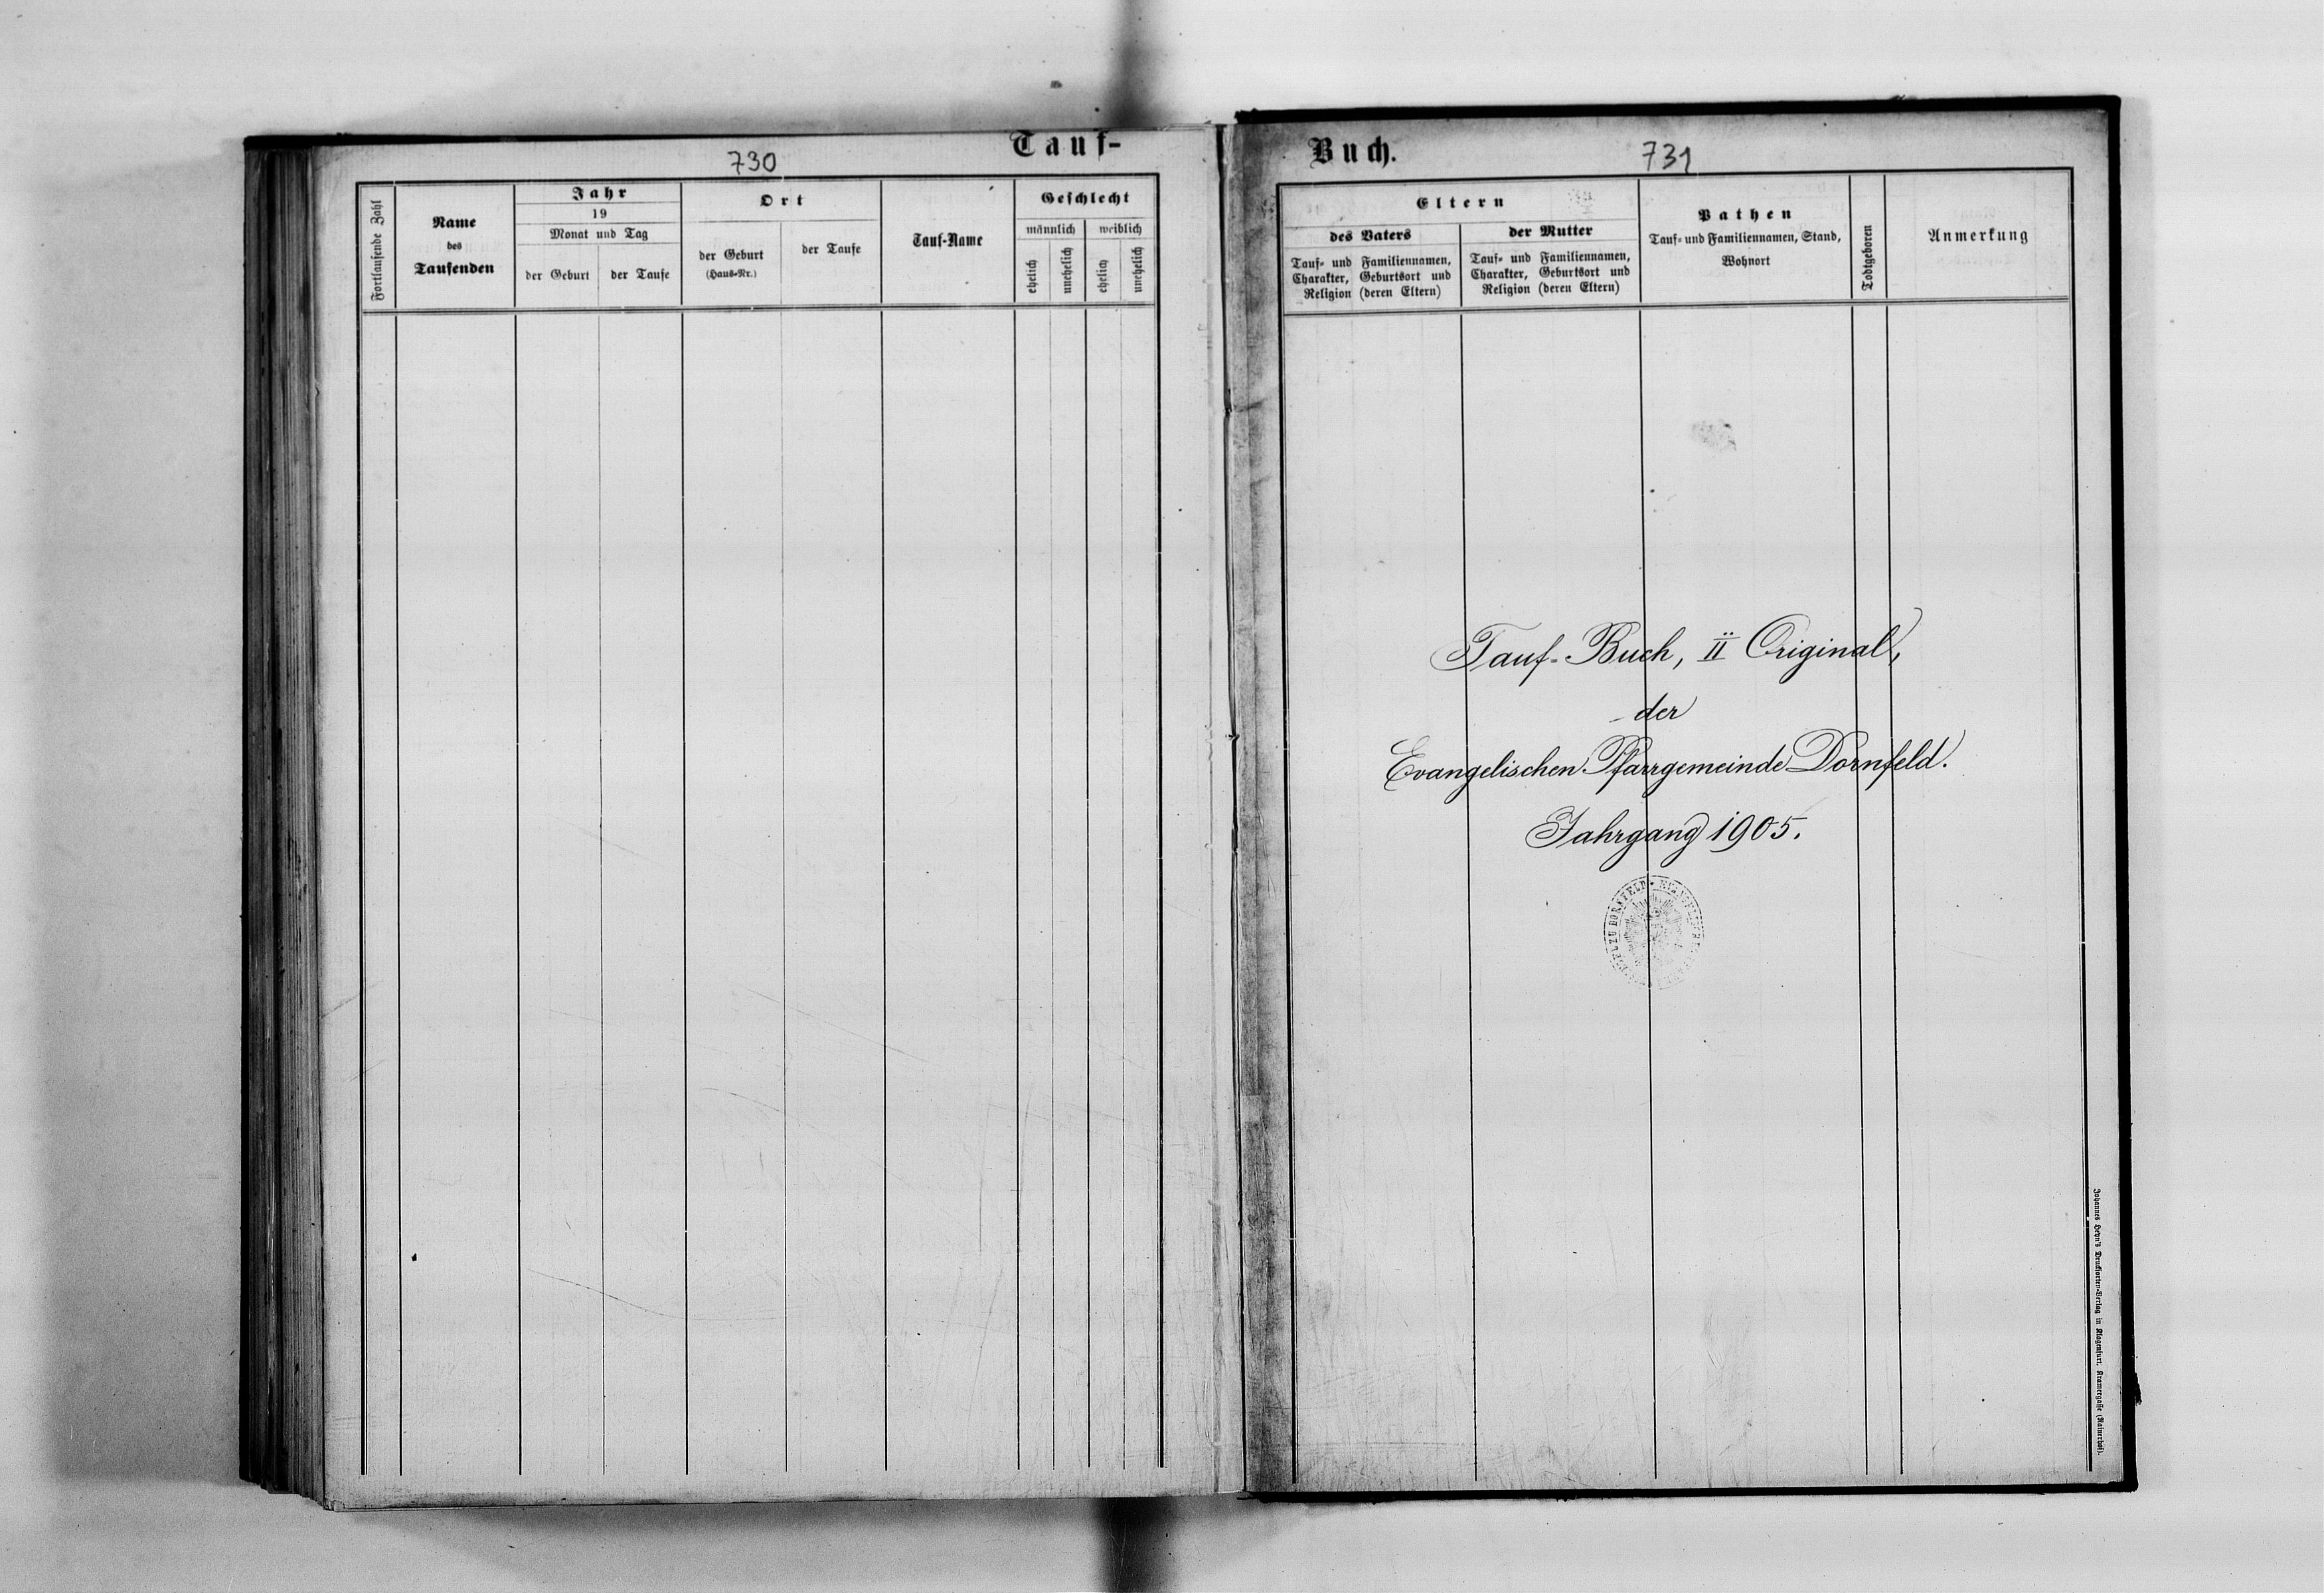 730
Tauf-
Fortlaufende Zahl
Name
des
Taufenden
Jahr
19
Monat und Tag
der Geburt
der Taufe
Ort
der Geburt
(Haus-Nr.)
der Taufe
Tauf-Name
Geschlecht
männlich
weiblich
ehelich
unehelich
ehelich
unehelich
Buch.
731
Eltern
des Vaters
Tauf- und Familiennamen,
Charakter, Geburtsort und
Religion (deren Eltern)
der Mutter
Tauf- und Familiennamen,
Charakter, Geburtsort und
Religion (deren Eltern)
Pathen
Tauf- und Familiennamen, Stand,
Wohnort
Todtgeboren
Anmerkung
Tauf-Buch, II Original,
der
Evangelischen Pfarrgemeinde Dornfeld.
Jahrgang 1905.
ZU DORNFELD
Johannes Heyn's Drucksorten-Verlag in Klagenfurt, Kramergasse (Rainerhof).